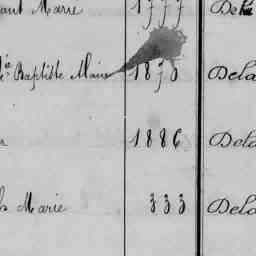 ant Marie 1777 Dela
Bte Baptiste Marie 1878 Dela
1886 Dela
Marie 333 Dela